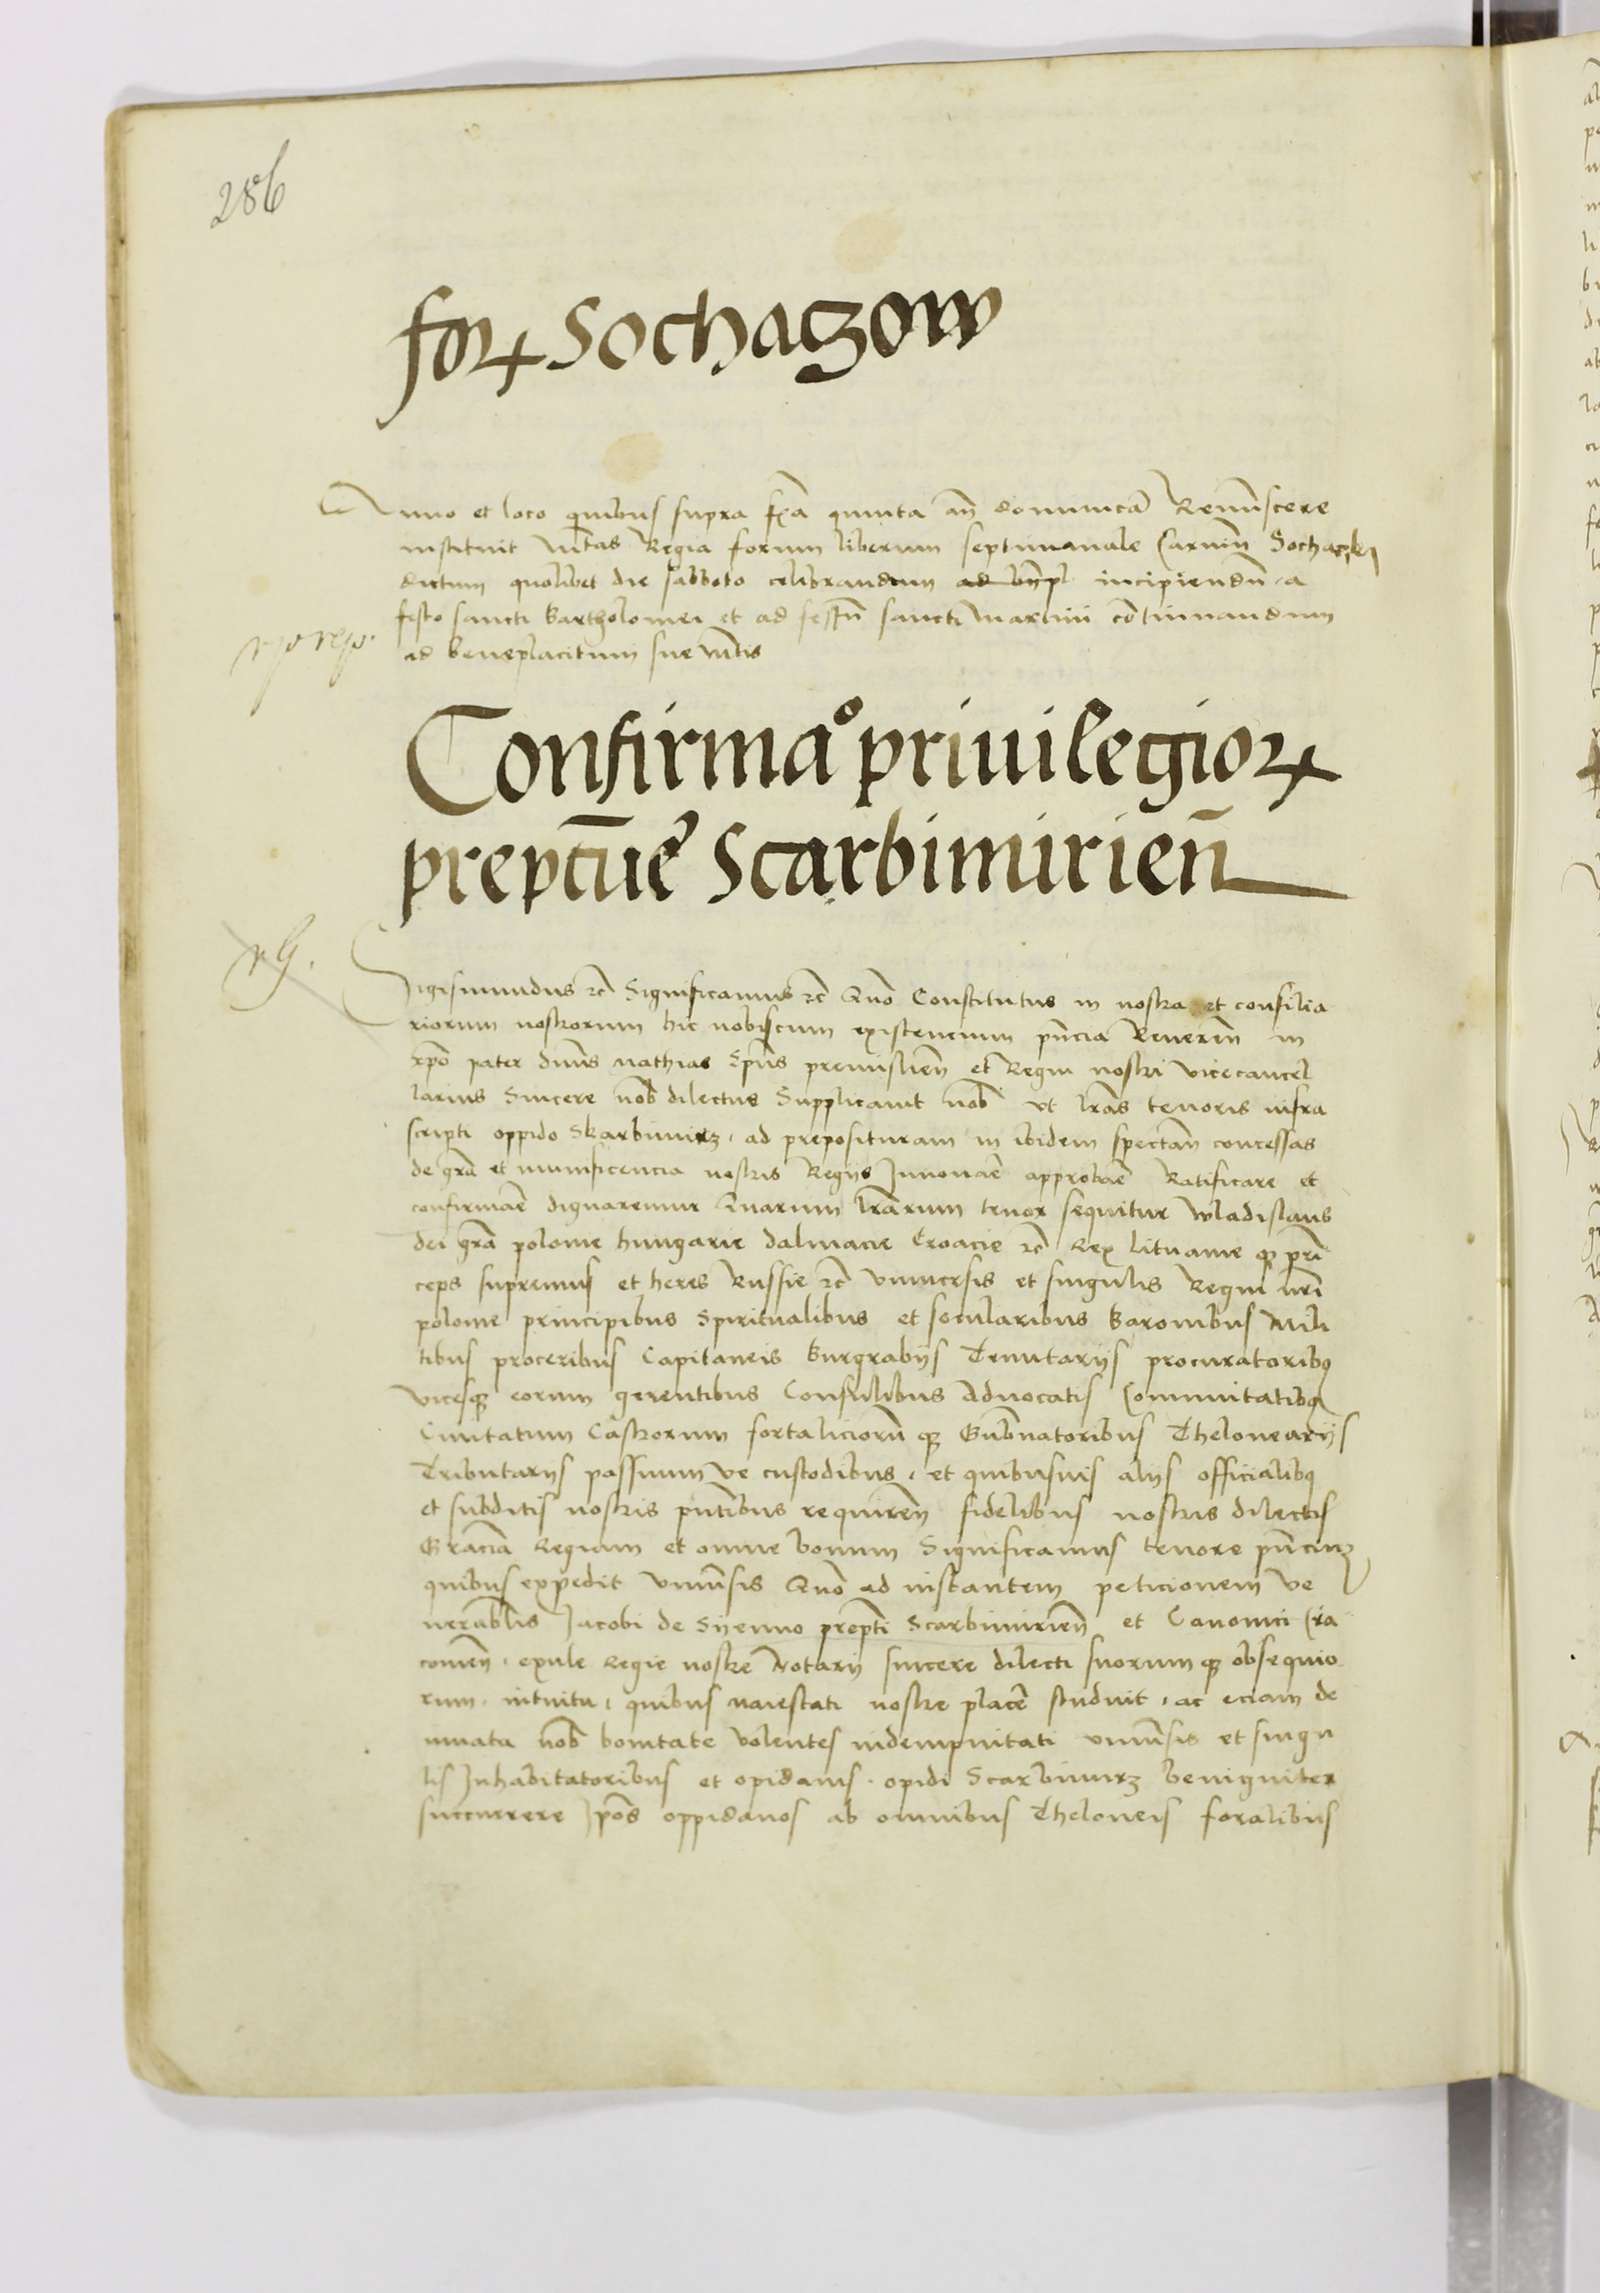 286
forꝝ Sochaczow
Anno et loco quibus supra fẽa quinta añ dominicã Reminiscere
instituit Mtãs Regia forum liberum septimanale Carniũ Sochaczow
dictum quolibet die sabboto celibrandum ad bñpl incipiendũ a
festo sancti Bartholomei et ad festũ sancti Martini cõtinuandum
ad beneplacitum sue Mtis
Confirmao priuilegioꝝ
prepture Scarbimirień
Sigismundus ꝛc Significamus ꝛc Quo Constitutus in nostra et consilia
riorum nostrorum hic nobiscum existencium pñcia Reueren in
xpo pater dñus Mathias Epũs premislień et Regni nostri vicecancel
larius Sincere nob dilectus Supplicauit nob vt lras tenoris infra
scripti oppido Skarbimirz, ad preposituram in ibidem spectań concessas
de gra et munificencia nostris Regijs Innouare approbare Ratificare et
confirmare dignaremur Quarum lrarum tenor sequitur Wladislaus
dei gra polonie hungarie dalmacie Croacie ꝛc Rex lituanie qz prin
ceps supremus et heres Russie ꝛc vniuersis et singulis Regni nri
polonie principibus spiritualibus et secularibus Baronibus Mili
tibus proceribus Capitaneis Burgrabijs Tenutarijs procuratoribꝫ
vicesqz eorum gerentibus Consulibus Aduocatis Comunitatibꝫ
Ciuitatum Castrorum fortaliciorũ qz Gubnatoribus Thelonearijs
Tributarijs passuum ve custodibus, et quibusuis alijs officialibꝫ
et subditis nostris pñtibus requirẽ fidelibus nostris dilectis
Graciã Regiam et omne bonum Significamus tenore pñciuꝫ
quibus expedit vniũsis Quo ad instantem peticionem ve
nerablis Jacobi de Syenno prepti Scarbimirień et Canonici Cra
comeń, exule Regie nostre Notarij sincere dilecti suorum qz obsequio
rum, intuitu, quibus Maiestati nostre place studuit, ac eciam de
innata nob bonitate volentes indempnitati vniũsis et singu
lis Inhabitatoribus et opidanis, opidi Scarbimirz benigniter
succurrere Ipos oppidanos ab omnibus Theloneis foralibus